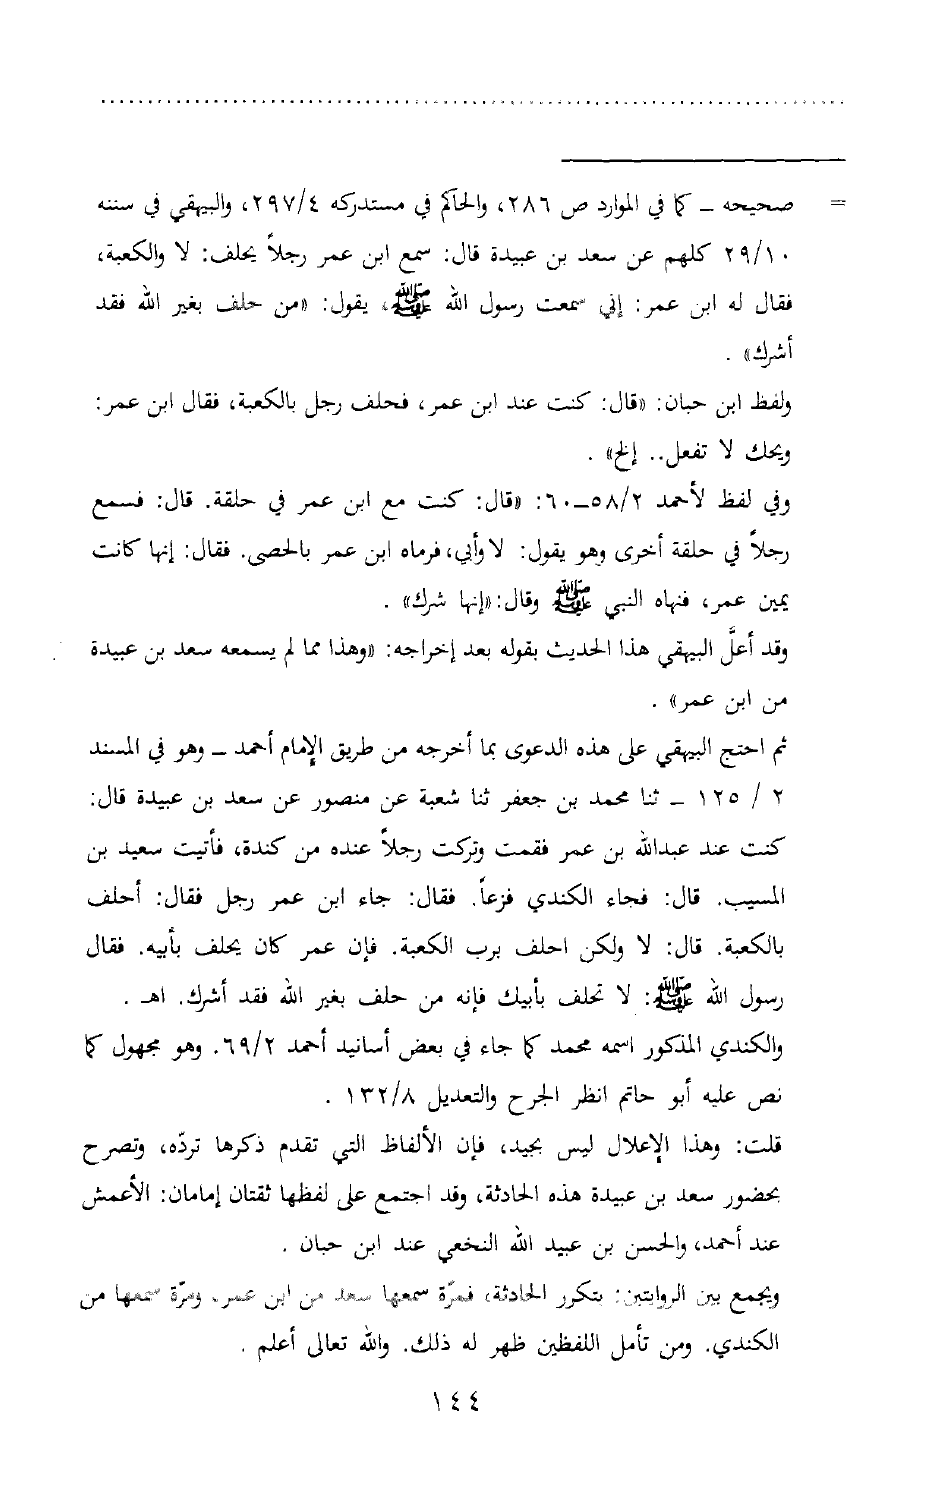 = صحيحه ـ كما في الموارد ص ٢٨٦، والحاكم في مستدركه ٢٩٧/٤، والبيهقي في سننه
٢٩/١٠ كلهم عن سعد بن عبيدة قال: سمع ابن عمر رجلاً يحلف: لا والكعبة،
فقال له ابن عمر: إني سمعت رسول الله ﷺ، يقول: «من حلف بغير الله فقد
أشرك» .
ولفظ ابن حبان: «قال: كنت عند ابن عمر، فحلف رجل بالكعبة، فقال ابن عمر:
ويحك لا تفعل.. إلخ» .
وفي لفظ لأحمد ٥٨/٢ـ٦٠: «قال: كنت مع ابن عمر في حلقة. قال: فسمع
رجلاً في حلقة أخرى وهو يقول: لا وأبي، فرماه ابن عمر بالحصى. فقال: إنها كانت
يمين عمر، فنهاه النبي ﷺ وقال:«إنها شرك» .
وقد أعلَّ البيهقي هذا الحديث بقوله بعد إخراجه: «وهذا مما لم يسمعه سعد بن عبيدة
من ابن عمر» .
ثم احتج البيهقي على هذه الدعوى بما أخرجه من طريق الإمام أحمد ـ وهو في المسند
٢ / ١٢٥ ـ ثنا محمد بن جعفر ثنا شعبة عن منصور عن سعد بن عبيدة قال:
كنت عند عبدالله بن عمر فقمت وتركت رجلاً عنده من كندة، فأتيت سعيد بن
المسيب. قال: فجاء الكندي فزعاً. فقال: جاء ابن عمر رجل فقال: أحلف
بالكعبة. قال: لا ولكن احلف برب الكعبة. فإن عمر كان يحلف بأبيه. فقال
رسول الله ﷺ: لا تحلف بأبيك فإنه من حلف بغير الله فقد أشرك. اهـ .
والكندي المذكور اسمه محمد كما جاء في بعض أسانيد أحمد ٦٩/٢. وهو مجهول كما
نص عليه أبو حاتم انظر الجرح والتعديل ١٣٢/٨ .
قلت: وهذا الإعلال ليس بجيد، فإن الألفاظ التي تقدم ذكرها تردّه، وتصرح
بحضور سعد بن عبيدة هذه الحادثة، وقد اجتمع على لفظها ثقتان إمامان: الأعمش
عند أحمد، والحسن بن عبيد الله النخعي عند ابن حبان .
ويجمع بين الروايتين: بتكرر الحادثة، فمرّة سمعها سعد من ابن عمر. ومرّة سمعها من
الكندي. ومن تأمل اللفظين ظهر له ذلك. والله تعالى أعلم .
١٤٤